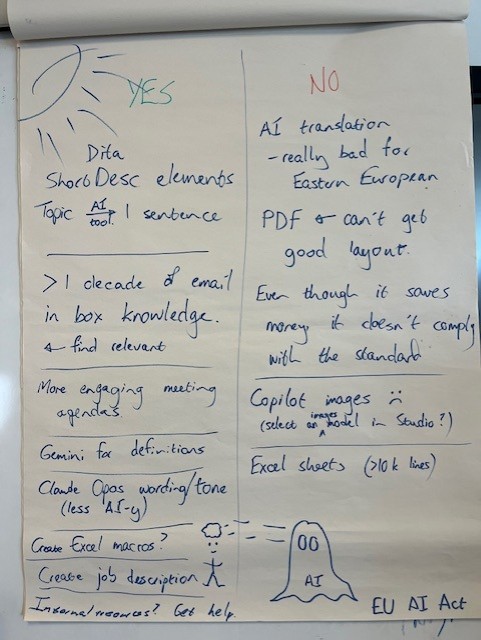 YES
Dita
ShortDesc elements
Topic AI tool 1 sentence
>1 decade of email
in box knowledge.
find relevant
More engaging meeting
agendas.
Gemini for definitions
Claude Opos wording/tone
(less AI-y)
Create Excel macros?
Create job description
Internal resources? Get help.
NO
AI translation
- really bad for
Eastern European
PDF ← can't get
good layout.
Even though it saves
money, it doesn't comply
with the standard
Copilot images :(
(select an images model in Studio?)
Excel sheets (>10k lines)
AI
EU AI Act